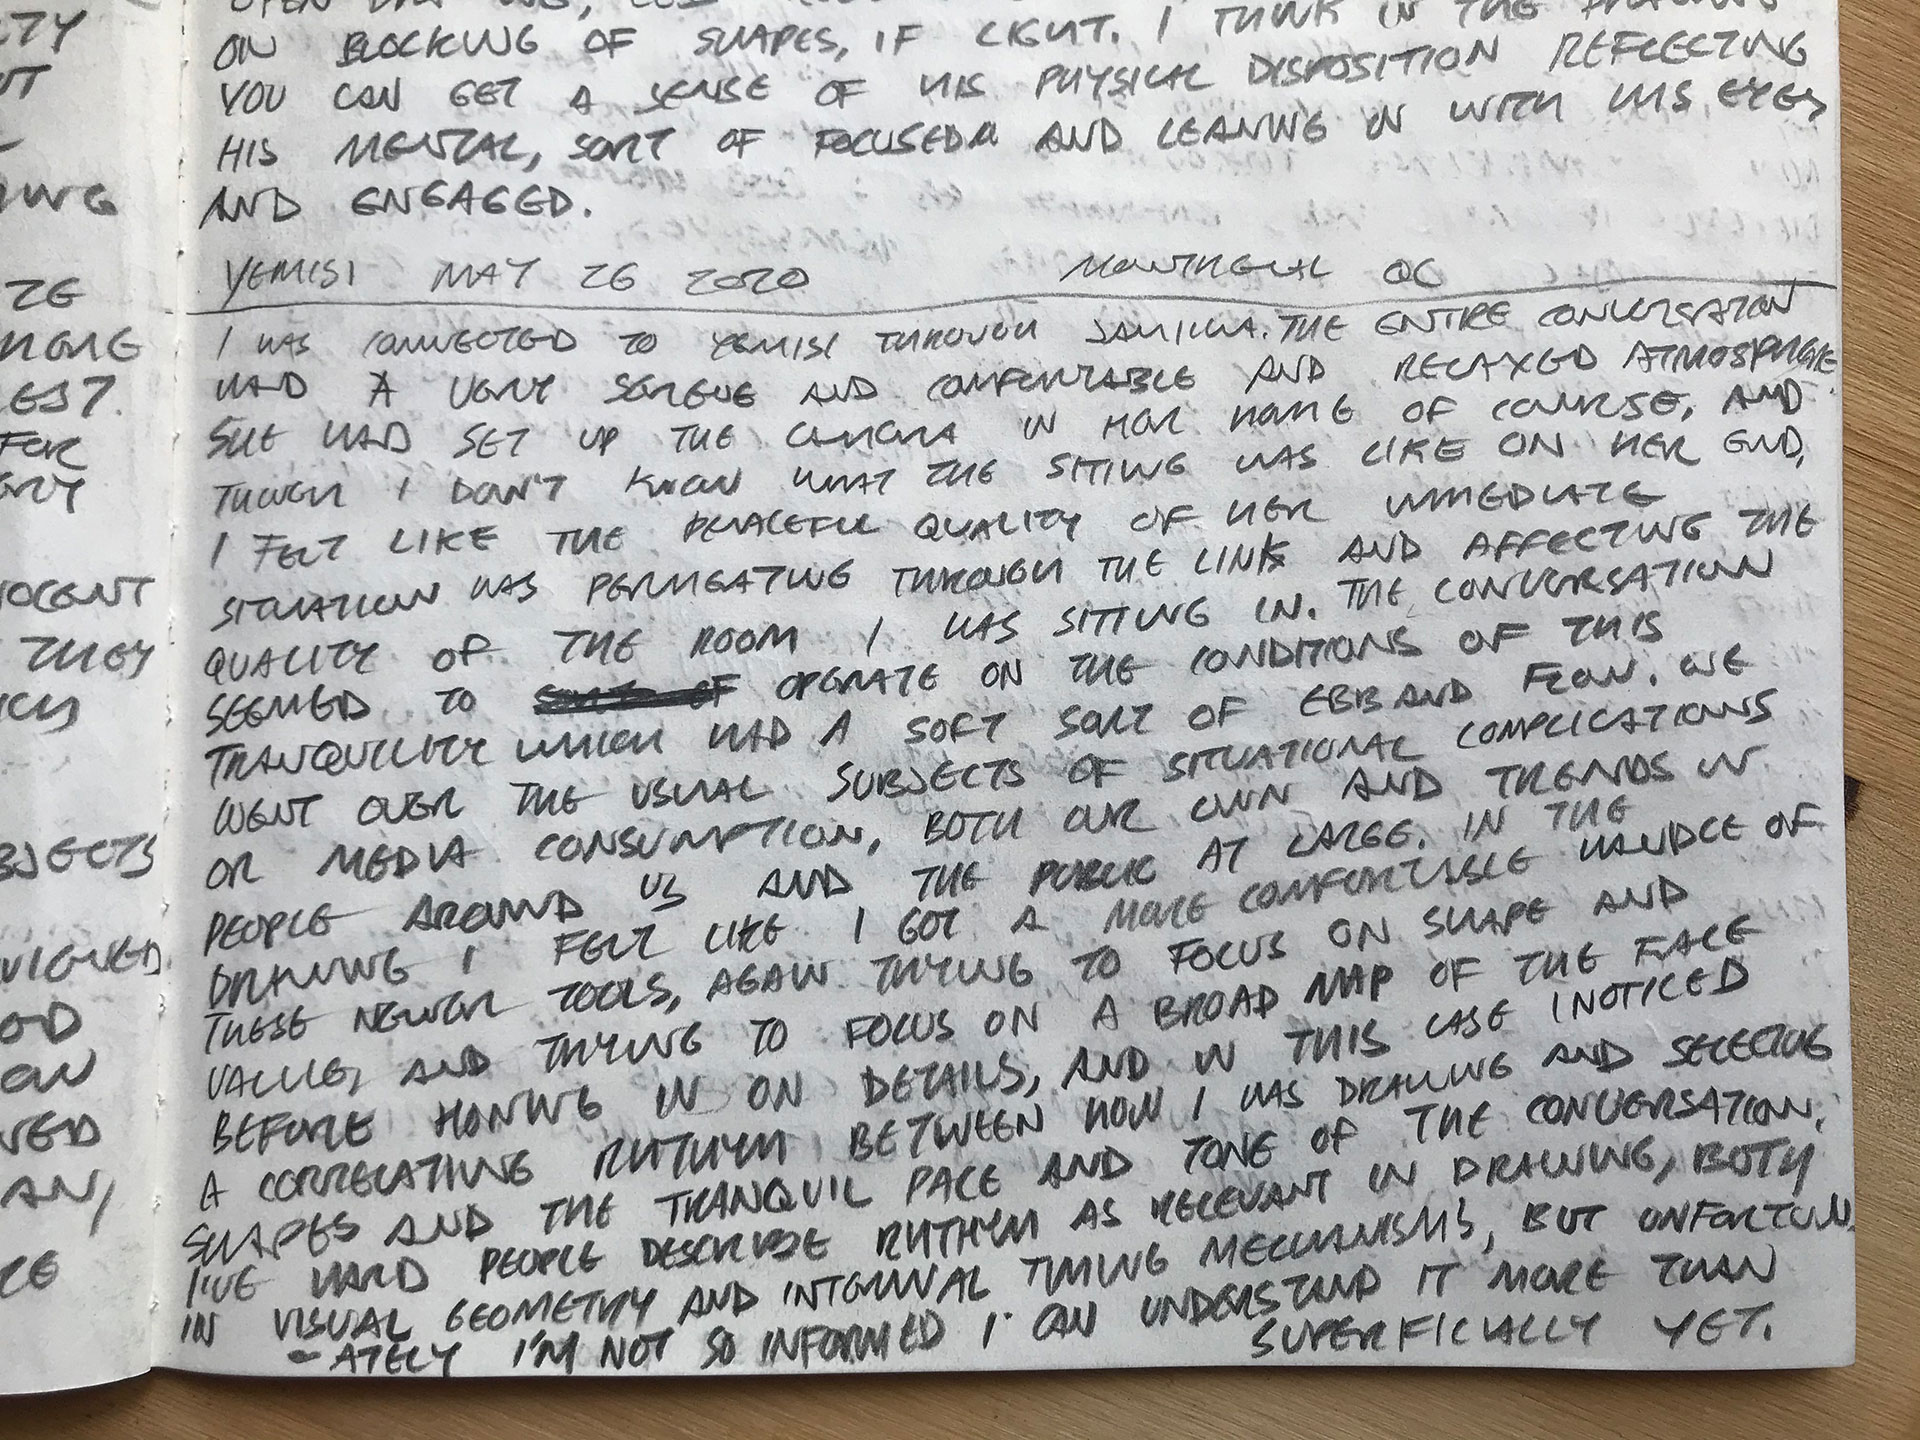 ON BLOCKING OF SHAPES, IF LIGHT. I THINK IN THE DRAWING
YOU CAN GET A SENSE OF HIS PHYSICAL DISPOSITION REFLECTING
HIS MENTAL, SORT OF FOCUSED AND LEANING IN WITH HIS EYES
AND ENGAGED.
YEMISI MAY 26 2020 MONTREAL QC
I WAS CONNECTED TO YEMISI THROUGH THE ENTIRE CONVERSATION
HAD A VERY SERENE AND COMFORTABLE AND RELAXED ATMOSPHERE.
SHE HAD SET UP THE CAMERA IN HER HOME OF COURSE, AND
THOUGH I DON'T KNOW WHAT THE SITING WAS LIKE ON HER END,
I FELT LIKE THE PEACEFUL QUALITY OF HER IMMEDIATE
SITUATION WAS PERMEATING THROUGH THE LINK AND AFFECTING THE
QUALITY OF THE ROOM I WAS SITTING IN. THE CONVERSATION
SEEMED TO OPERATE ON THE CONDITIONS OF THIS
TRANQUILITY WHICH HAD A SOFT SORT OF EBB AND FLOW. WE
WENT OVER THE USUAL SUBJECTS OF SITUATIONAL COMPLICATIONS
OR MEDIA CONSUMPTION, BOTH OUR OWN AND TRENDS IN
PEOPLE AROUND US AND THE PUBLIC AT LARGE. IN THE
DRAWING I FELT LIKE I GOT A MORE COMFORTABLE HANDLE OF
THESE NEWER TOOLS, AGAIN TRYING TO FOCUS ON SHAPE AND
VALUE, AND TRYING TO FOCUS ON A BROAD MAP OF THE FACE
BEFORE HONING IN ON DETAILS, AND IN THIS CASE I NOTICED
A CORRELATING RHTHYM BETWEEN HOW I WAS DRAWING AND SELECTING
SHAPES AND THE TRANQUIL PACE AND TONE OF THE CONVERSATION.
I'VE HARD PEOPLE DESCRIBE RHTHYM AS RELEVANT IN DRAWING, BOTH
IN VISUAL GEOMETRY AND INTERNAL TIMING MECHANISMS, BUT UNFORTUN
-ATELY I'M NOT SO INFORMED I CAN UNDERSTAND IT MORE THAN
SUPERFICIALLY YET.